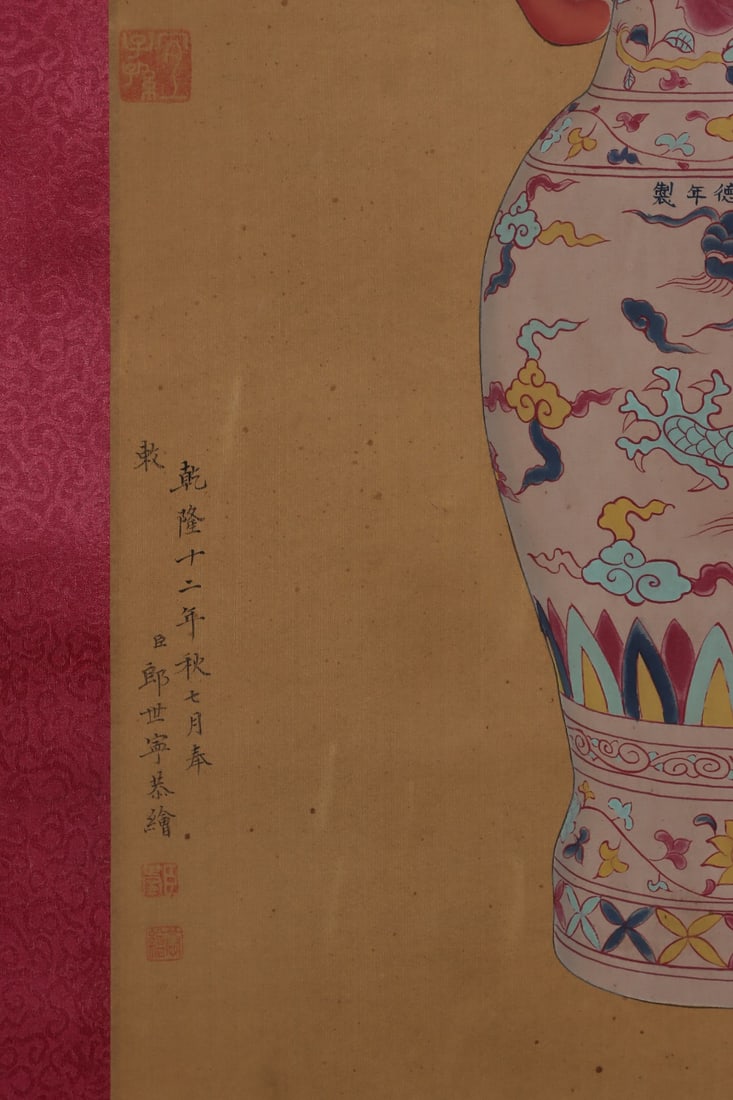 德年製
宜子孫
乾隆十二年秋七月奉
敕臣郎世寧恭繪